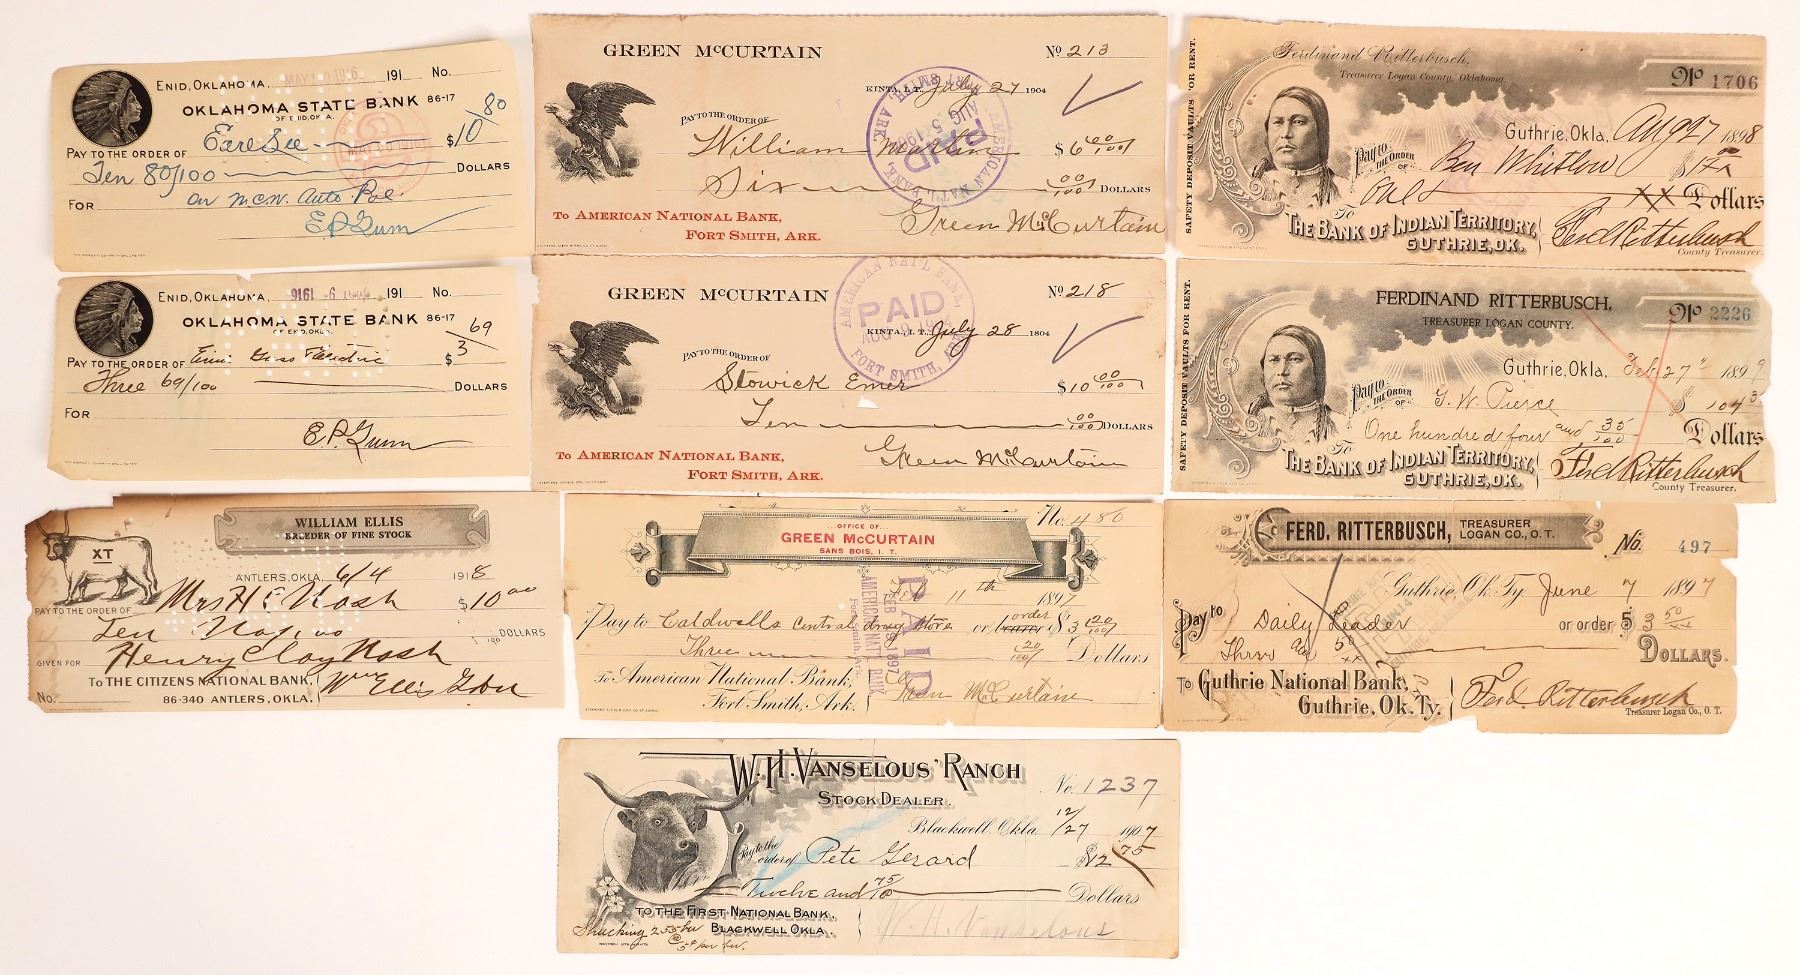 ENID, OKLAHOMA, MAY 10 1916 191 No.
OKLAHOMA STATE BANK 86-17
OF ENID, OKLA.
PAY TO THE ORDER OF $10 80
Ten 80/100 DOLLARS
FOR on
E.P. Gunn
ENID, OKLAHOMA, 191 No.
OKLAHOMA STATE BANK 86-17
OF ENID, OKLA.
PAY TO THE ORDER OF $ 3 69
Three 69/100 DOLLARS
FOR
E.P. Gunn
XT
WILLIAM ELLIS
BREEDER OF FINE STOCK
ANTLERS, OKLA. 6/4 1918
PAY TO THE ORDER OF Mrs H C Nash $10.00
Ten DOLLARS
GIVEN FOR Henry Clay Nash
TO THE CITIZENS NATIONAL BANK,
No. 86-340 ANTLERS, OKLA.
Wm Ellis
GREEN McCURTAIN No 213
KINTA, I.T. July 27 1904
PAY TO THE ORDER OF
William Martin $6 00/100
Six 00/100 DOLLARS
TO AMERICAN NATIONAL BANK,
FORT SMITH, ARK.
Green McCurtain
AMERICAN NAT'L BANK, FORT SMITH, ARK.
PAID
GREEN McCURTAIN No 218
KINTA, I.T. July 28 1804
PAY TO THE ORDER OF
Stowick Emer $10 00/100
Ten 00/100 DOLLARS
TO AMERICAN NATIONAL BANK,
FORT SMITH, ARK.
Green McCurtain
AMERICAN NAT'L BANK, FORT SMITH, ARK.
PAID
OFFICE OF
GREEN McCURTAIN
SANS BOIS, I. T.
No. 480
Feb 11th 1897
Pay to Caldwells Central drug store or bearer order $3 20/100
Three 20/100 Dollars
To American National Bank,
Fort Smith, Ark.
Green McCurtain
PAID
FEB 19 1897
AMERICAN NAT'L BANK
Fort Smith, Ark.
SAFETY DEPOSIT VAULTS FOR RENT.
Ferdinand Ritterbusch,
Treasurer Logan County, Oklahoma.
No 1706
Guthrie, Okla. Aug 27 1898
Pay to THE ORDER OF Ben Whitlow
Dollars
To THE BANK OF INDIAN TERRITORY,
GUTHRIE, OK.
Ferd Ritterbusch
County Treasurer.
SAFETY DEPOSIT VAULTS FOR RENT.
FERDINAND RITTERBUSCH,
TREASURER LOGAN COUNTY.
No 2226
Guthrie, Okla. Feb. 27" 1899
Pay to THE ORDER OF G. W. Pierce $ 104 35
One hundred four and 35/100 Dollars
To THE BANK OF INDIAN TERRITORY,
GUTHRIE, OK.
Ferd Ritterbusch
County Treasurer.
FERD. RITTERBUSCH, TREASURER
LOGAN CO., O. T.
No. 497
Guthrie, Ok. Ty. June 7 1897
Pay to Daily Leader or order $ 3 50
DOLLARS.
To Guthrie National Bank,
Guthrie, Ok. Ty.
Ferd. Ritterbusch
Treasurer Logan Co., O. T.
W. H. VANSELOUS' RANCH
STOCK DEALER.
No. 1237
Blackwell, Okla 12/27 1907
Pay to the order of Pete Gerard $12 75
Twelve and 75/ Dollars
TO THE FIRST NATIONAL BANK,
BLACKWELL OKLA.
W. H. Vanselous
Shucking 255 bu
@ 5¢ per bu.